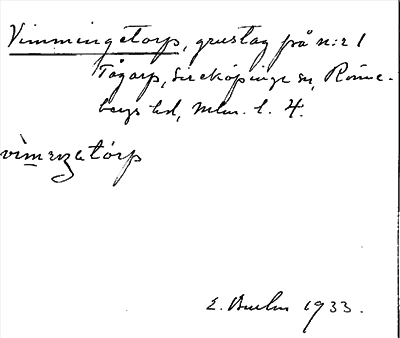 Vimmingetorp, grustag på n:r 1
Tågarp, Sireköpinge sn, Rönne-
bergs hd, Mlm. l. 4.
vìmeŋatórp
E. 1933.